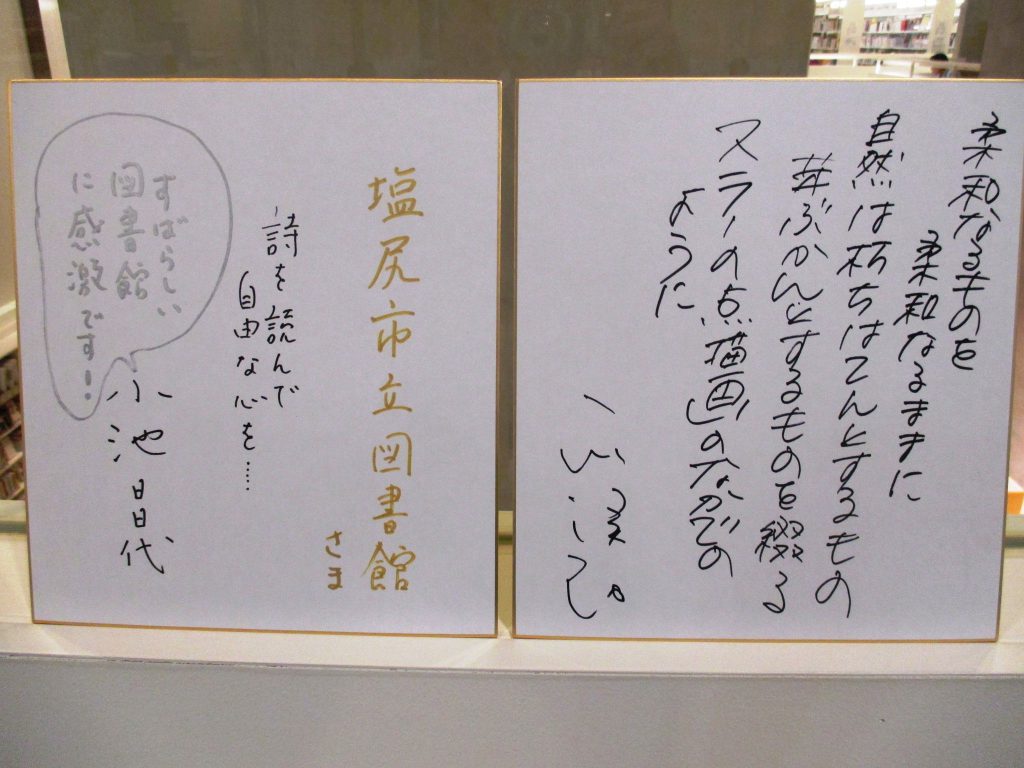 柔和なるものを
柔和なるままに
自然は朽ちはてんとするもの
芽ぶかんとするものを綴る
スラーの点描画のなかでの
ように
塩尻市立図書館
さま
詩を読んで
自由な心を……
小池昌代
すばらしい
図書館
に感激です!